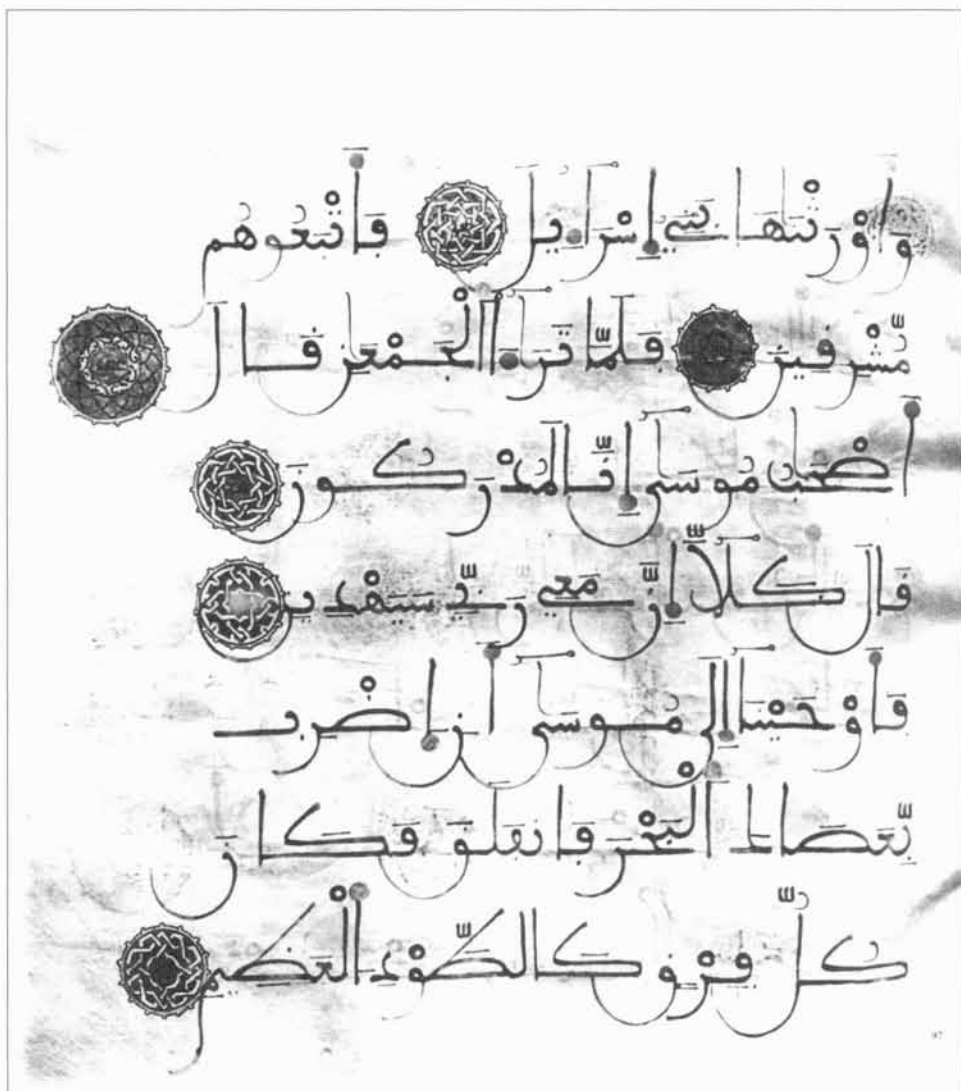 وَأَوْرَثْنَٰهَا بَنِيٓ إِسْرَآءِيلَ فَأَتْبَعُوهُم
مُّشْرِقِينَ فَلَمَّا تَرَٰٓءَا ٱلْجَمْعَٰنِ قَالَ
أَصْحَٰبُ مُوسَىٰٓ إِنَّا لَمُدْرَكُونَ
قَالَ كَلَّآ إِنَّ مَعِي رَبِّي سَيَهْدِينِ
فَأَوْحَيْنَآ إِلَىٰ مُوسَىٰٓ أَنِ ٱضْرِب
بِّعَصَاكَ ٱلْبَحْرَ فَٱنفَلَقَ فَكَانَ
كُلُّ فِرْقٍ كَٱلطَّوْدِ ٱلْعَظِيمِ
97